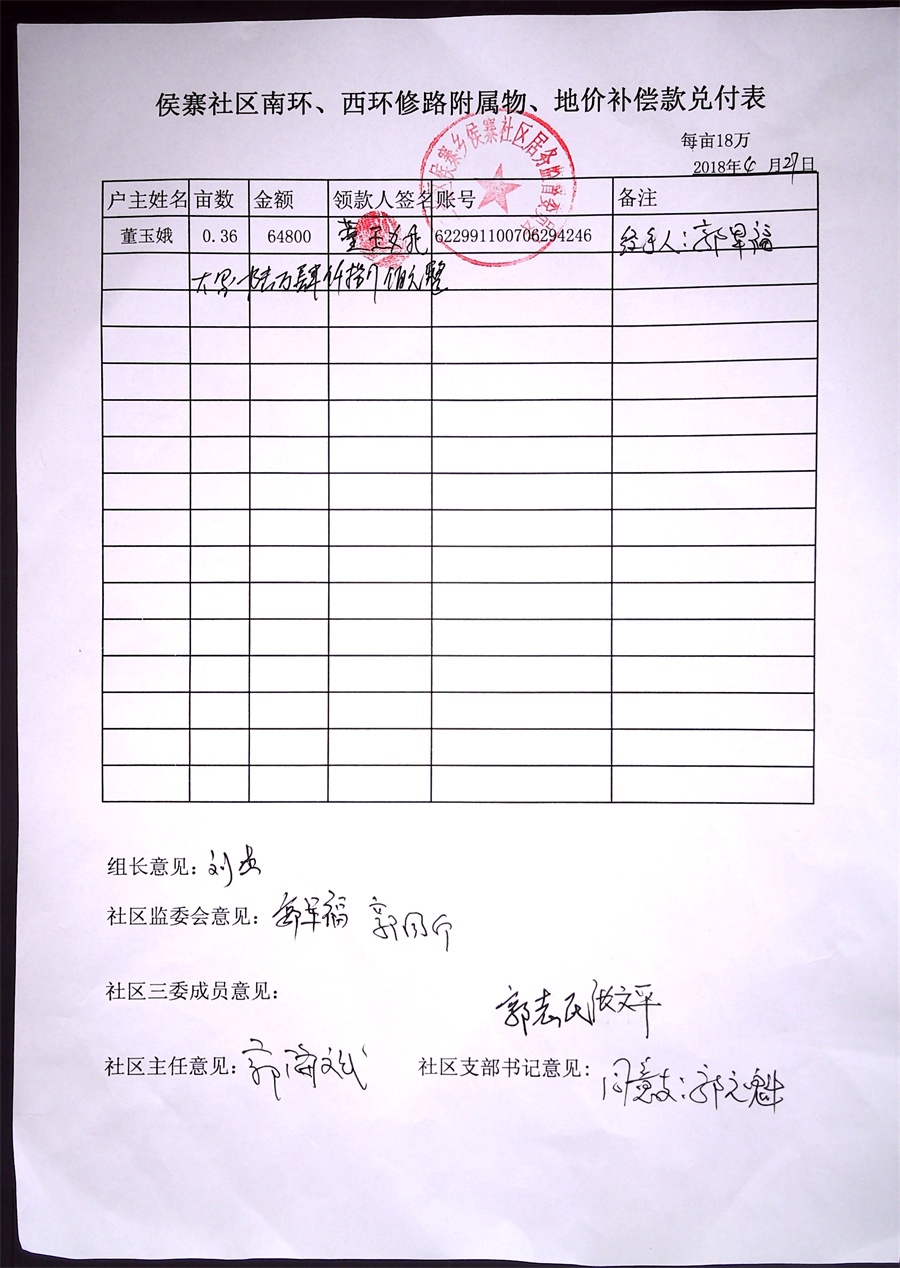 侯寨社区南环、西环修路附属物、地价补偿款兑付表
每亩18万
2018年4月27日
侯寨乡侯寨社区居务监督委员会
户主姓名 亩数 金额 领款人签名 账号 备注
董玉娥 0.36 64800 董玉娥 622991100706294246 经手人:郭早福
大写:陆万肆仟捌佰元整
组长意见:刘
社区监委会意见:郭早福 郭同
社区三委成员意见:
郭志民 文平
社区主任意见:郭 社区支部书记意见:同意支:郭元魁